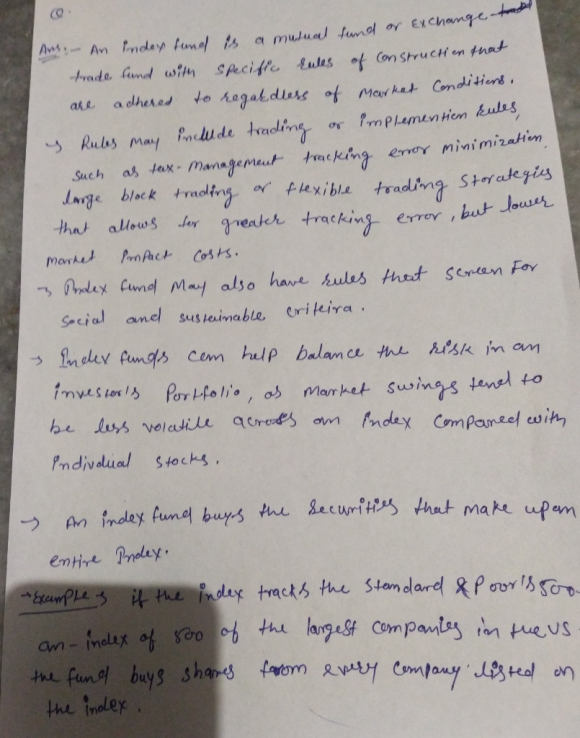 Q.
Ans:- An index fund is a mutual fund or Exchange-
trade fund with specific rules of construction that
are adhered to regardless of Market Conditions.
→ Rules may include trading or implemention rules,
such as tax-management tracking error minimization
large block trading or flexible trading storategies
that allows for greater tracking error, but lower
market impact costs.
→ Index fund May also have rules that screen For
social and sustainable criteira.
→ Index funds can help balance the risk in an
investor's Portfolio, as market swings tend to
be less volatile across an index compared with
individual stocks.
→ An index fund buys the securities that make upan
entire Index.
→ Example → if the index tracks the standard & Poor's 500-
an-index of 500 of the largest companies in the US
the fund buys shares from every company listed on
the index.